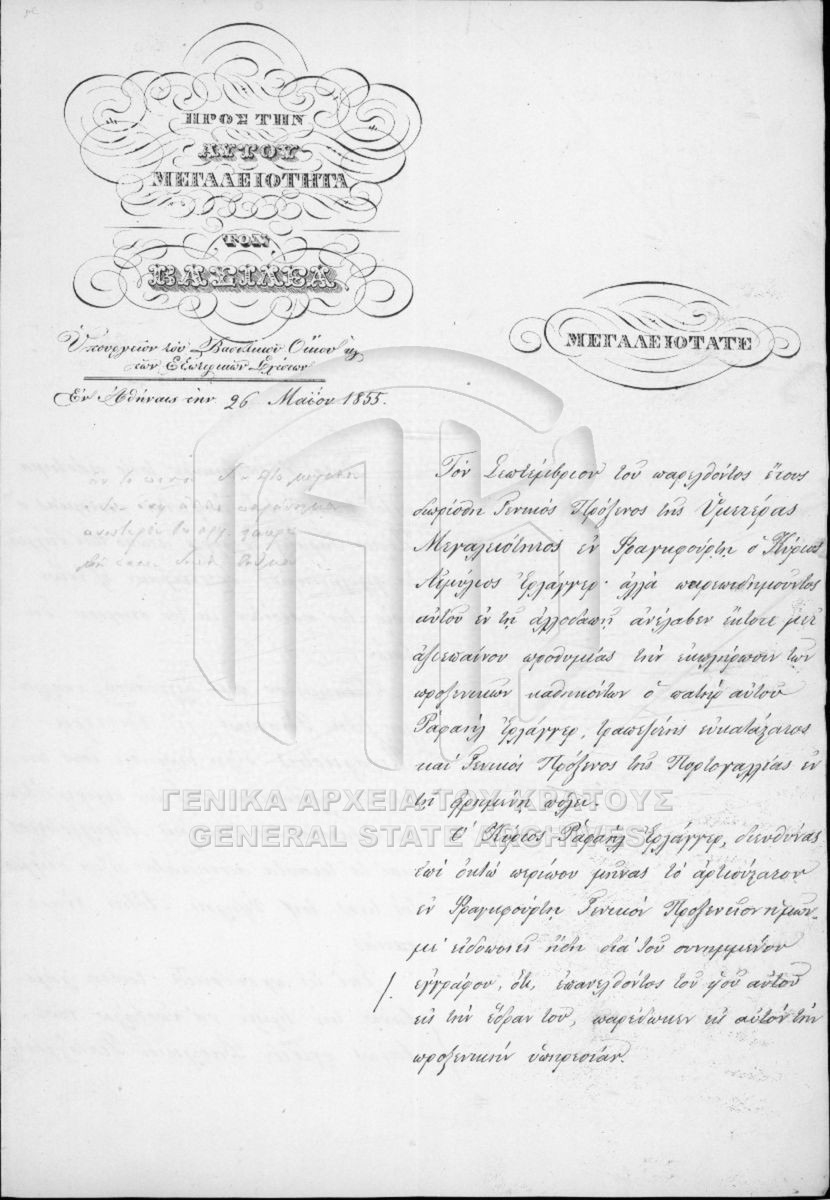 ΠΡΟΣ ΤΗΝ
ΑΥΤΟΥ
ΜΕΓΑΛΕΙΟΤΗΤΑ
ΤΟΝ
ΒΑΣΙΛΕΑ
Ὑπουργεῖον τοῦ Βασιλικοῦ Οἴκου κỳ
τῶν Ἐξωτερικῶν Σχέσεων
Ἐν Ἀθήναις τὴν 26 Μαΐου 1855.
ΜΕΓΑΛΕΙΟΤΑΤΕ
Τὸν Σεπτέμβριον τοῦ παρελθόντος ἔτους
διωρίσθη Γενικὸς Πρόξενος τῆς Ὑμετέρας
Μεγαλειότητος ἐν Φραγκφούρτῃ ὁ Κύριος
Αἰμύλιος Ἐρλάγγερ· ἀλλὰ παρεπιδημοῦντος
αὐτοῦ ἐν τῇ ἀλλοδαπῇ ἀνέλαβεν ἔκτοτε μετ'
ἀξιεπαίνου προθυμίας τὴν ἐκπλήρωσιν τῶν
προξενικῶν καθηκόντων ὁ πατὴρ αὐτοῦ
Ῥαφαὴλ Ἐρλάγγερ, τραπεζίτης εὐκατάστατος
καὶ Γενικὸς Πρόξενος τῆς Πορτογαλλίας ἐν
τῇ εἰρημένῃ πόλει.
Ὁ Κύριος Ῥαφαὴλ Ἐρλάγγερ, διευθύνας
ἐπὶ ὀκτὼ περίπου μῆνας τὸ ἀρτισύστατον
ἐν Φραγκφούρτῃ Γενικὸν Προξενεῖον ἡμῶν,
μὲ εἰδοποιεῖ ἤδη διὰ τοῦ συνημμένου
ἐγγράφου, ὅτι, ἐπανελθόντος τοῦ υἱοῦ αὐτοῦ
εἰς τὴν ἕδραν του, παρέδωκεν εἰς αὐτὸν τὴν
προξενικὴν ὑπηρεσίαν.
ΓΕΝΙΚΑ ΑΡΧΕΙΑ ΤΟΥ ΚΡΑΤΟΥΣ
GENERAL STATE ARCHIVES